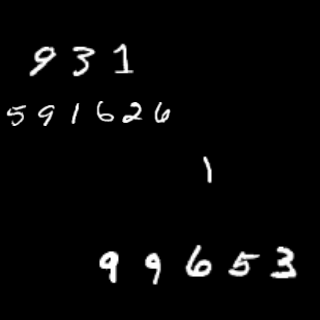 931
591626
1
99653